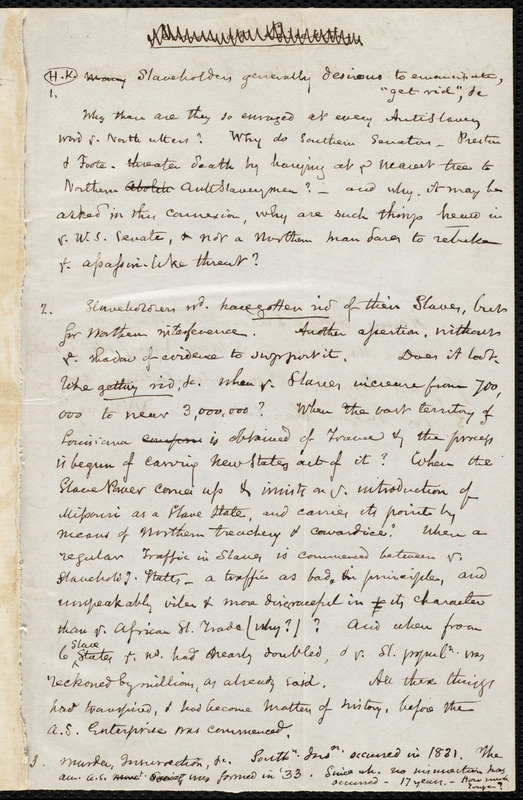 H.K. Many Slaveholders generally desirous to emancipate,
1. "get rid", &c
Why then are they so enraged at every AntiSlavery
word f. North utters? Why do Southern Senators - Preston
& Foote - threaten death by hanging at f. nearest tree to
Northern Abolit AntiSlaverymen? - and why, it may be
asked in this connexion, why are such things heard in
f. U.S. Senate, & not a Northern man dares to rebuke
f. assassin-like threat?
2. Slaveholders wd. have gotten rid of their Slaves, but
for Northern interference. Another assertion, without
f. shadow of evidence to support it. Does it look
like getting rid, &c. when f. Slaves increase from 700,
000 to near 3,000,000? When the vast territory of
Louisiana is obtained of France & the process
is begun of carving new States out of it? When the
Slave Power comes up & insists on f. introduction of
Missouri as a Slave State, and carries its point by
means of Northern treachery & cowardice? When a
regular Traffic in Slaves is commenced between f.
Slavehold? States - a traffic as bad, in principle, and
unspeakably viler & more disgraceful in its character
than f. African Sl. Trade (why?)? And when from
6 Slave States f. no. had nearly doubled, & f. Sl. populn. was
reckoned by millions, as already said. All these things
had transpired, & had become matters of history, before the
A.S. Enterprise was commenced.
3. Murder, Insurrection, &c. Southn. Insn. occurred in 1831. The
Am. A.S. Society was formed in '33. Since wh. no insurrection has
occurred - 17 years. - How much
longer?